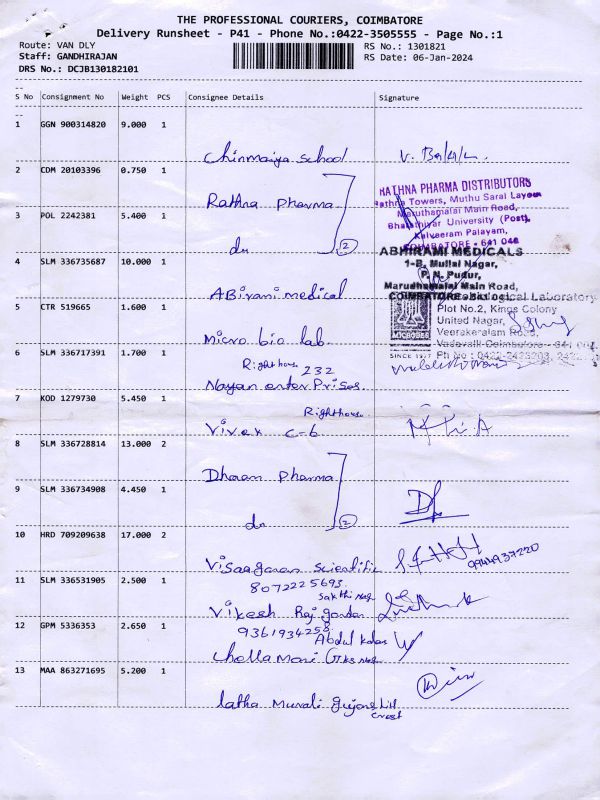 THE PROFESSIONAL COURIERS, COIMBATORE
Delivery Runsheet - P41 - Phone No.:0422-3505555 - Page No.:1
Route: VAN DLY
RS No.: 1301821
Staff: GANDHIRAJAN
RS Date: 06-Jan-2024
DRS No.: DCJB130182101
S No Consignment No Weight PCS Consignee Details Signature
1 GGN 900314820 9.000 1
Chinmaiya school
2 CDM 20103396 0.750 1
Rathna pharma
RATHNA PHARMA DISTRIBUTORS
Rathna Towers, Muthu Saral Layout
Maruthamalai Main Road,
Bharathiyar University (Post),
Kalveeram Palayam,
COIMBATORE - 641 046
3 POL 2242381 5.400 1
do 2
4 SLM 336735687 10.000 1
ABirami medical
ABHIRAMI MEDICALS
1-B, Mullai Nagar,
P. N. Pudur,
Marudhamalai Main Road,
COIMBATORE
5 CTR 519665 1.600 1
Micro bio lab
Microbiological Laboratory
Plot No.2, Kings Colony
United Nagar,
Veerakeralam Road,
Vadavalli Coimbatore - 641
SINCE Ph No : 0422-2423203,
6 SLM 336717391 1.700 1
Right house 232
Nayan enterprises
7 KOD 1279730 5.450 1
Right house
Vivek C-6
8 SLM 336728814 13.000 2
Dhaam pharma
9 SLM 336734908 4.450 1
do 2
10 HRD 709209638 17.000 2
Visaagaran scientific
9944937220
11 SLM 336531905 2.500 1
8072225693
Sakthi nag
Vikesh Raj
12 GPM 5336353 2.650 1
9361934258
Abdul kalam
Chella mani GKS nag
13 MAA 863271695 5.200 1
latha Murali
crest